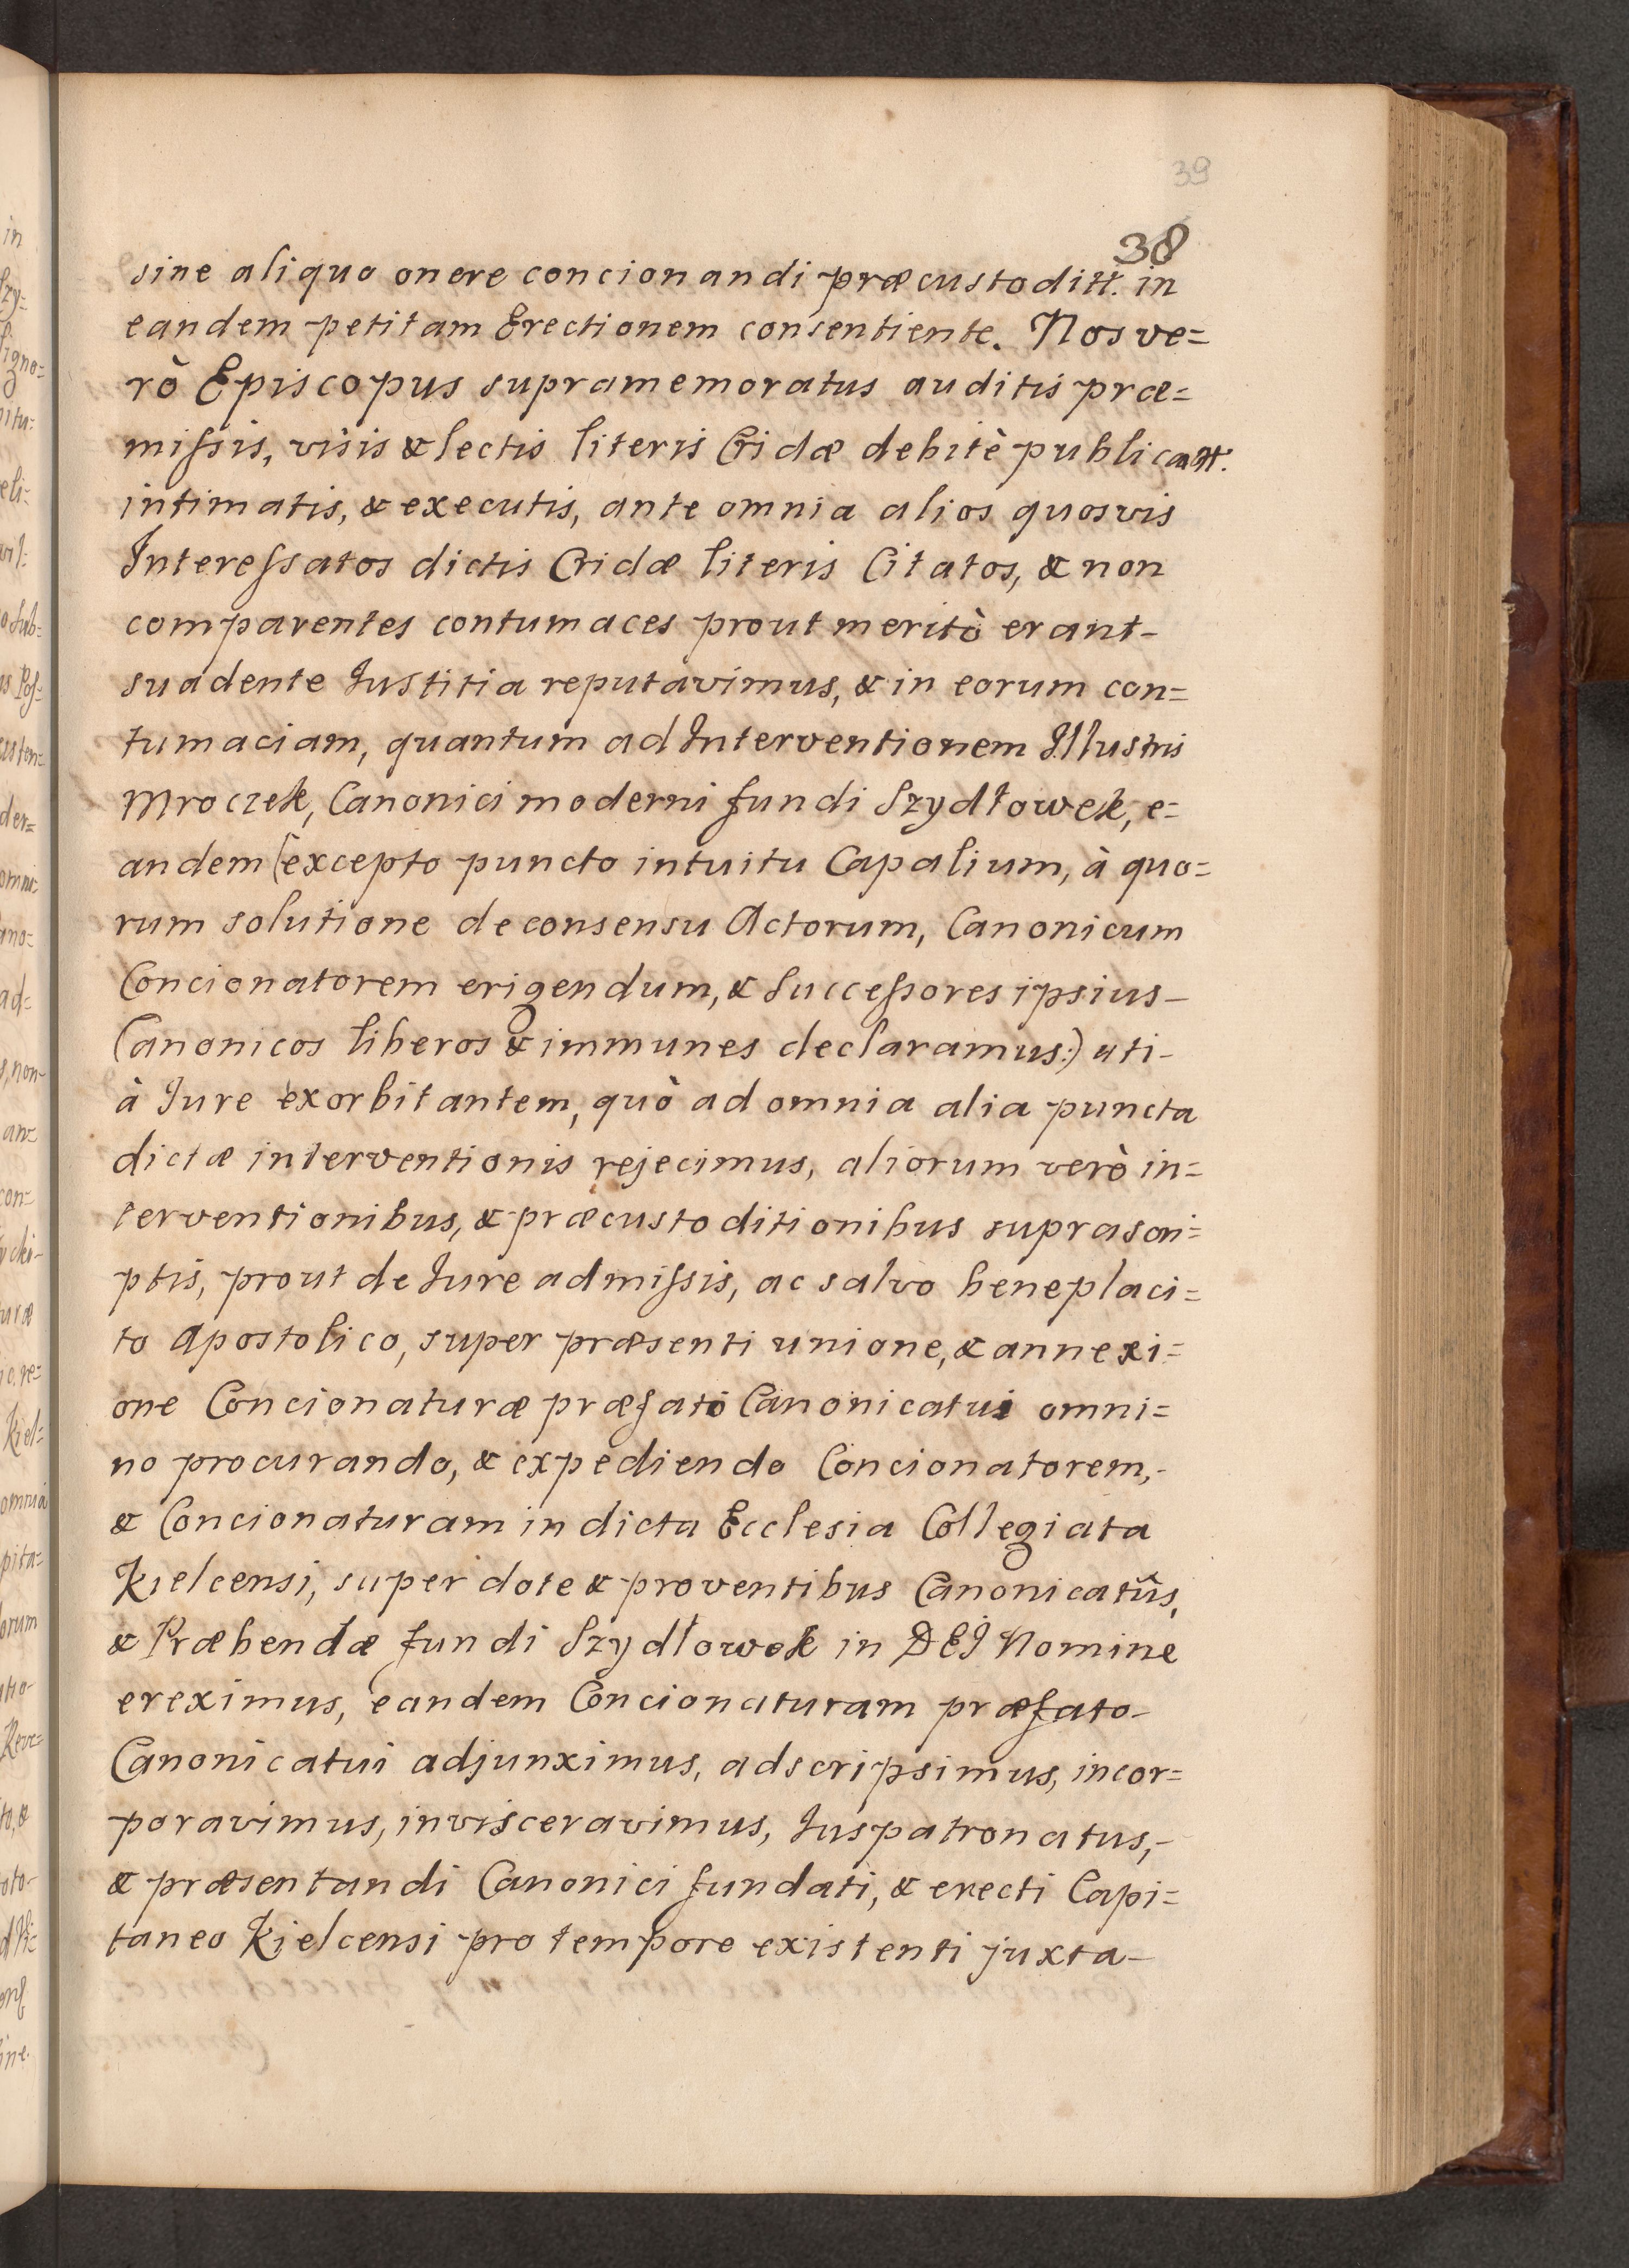 39
38
sine aliquo onere concionandi præcustoditt. in
eandem petitam Erectionem consentiente. Nos ve=
rò Episcopus supramemoratus auditis præ=
missis, visis & lectis literis Cridæ debitè publicatt.
intimatis, & executis, ante omnia alios quosvis
Interessatos dictis Cridæ literis Citatos, & non
comparentes contumaces prout meritò erant-
suadente Justitia reputavimus, & in eorum con=
tumaciam, quantum ad Interventionem Illustris
Mroczek, Canonici moderni fundi Szydłowek, e=
andem (excepto puncto intuitu Capalium, à quo=
rum solutione de consensu Actorum, Canonicum
Concionatorem erigendum, & Successores ipsius-
Canonicos liberos & immunes declaramus:) uti-
à Jure exorbitantem, quò ad omnia alia puncta
dictæ interventionis rejecimus, aliorum verò in=
terventionibus, & præcustoditionibus suprascri=
ptis, prout de Jure admissis, ac salvo beneplaci=
to Apostolico, super præsenti unione, & annexi=
one Concionaturæ præfato Canonicatui omni=
no procurando, & expediendo Concionatorem,-
& Concionaturam in dicta Ecclesia Collegiata
Kielcensi, super dote & proventibus Canonicatûs,
& Præbendæ fundi Szydłowek in DEI Nomine
ereximus, eandem Concionaturam præfato-
Canonicatui adjunximus, adscripsimus, incor=
poravimus, invisceravimus, Juspatronatus,-
& præsentandi Canonici fundati, & erecti Capi=
taneo Kielcensi pro tempore existenti juxta-